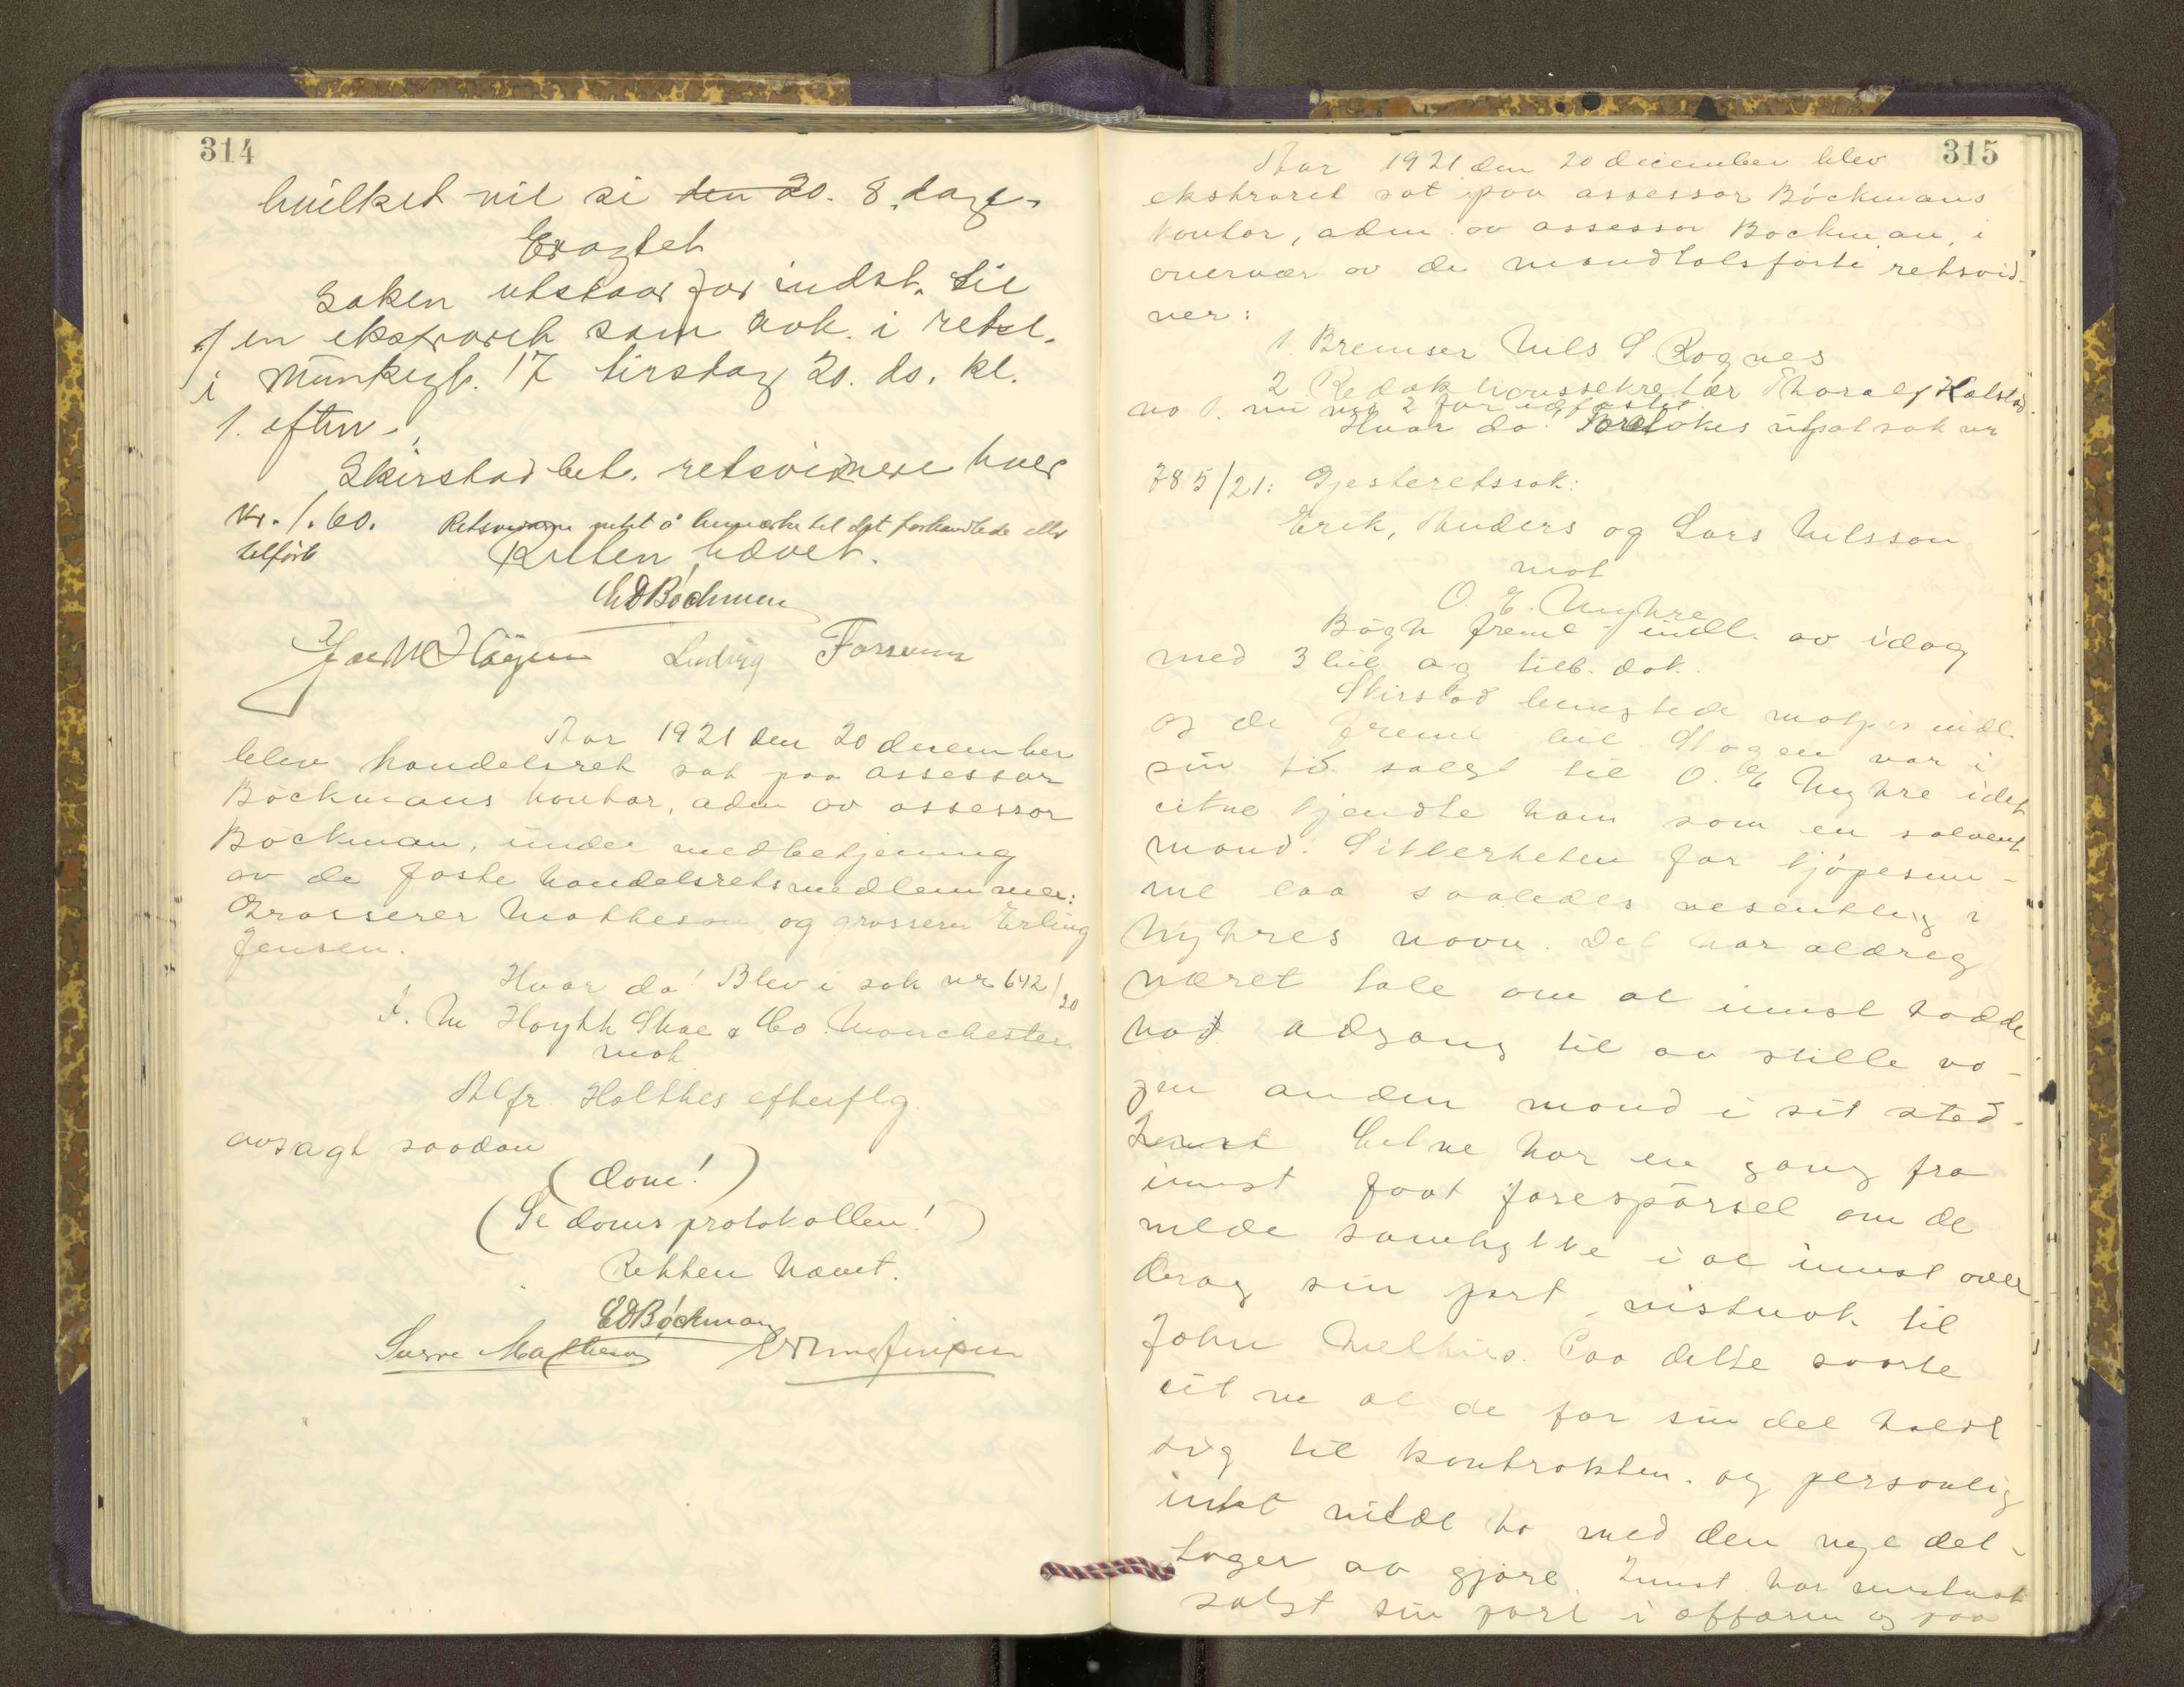 314
hvilket vil si den 20. 8. dage.
Eragtet
Saken utstaar for indst. til
en ekstraret som avh. i retsl.
i Munkegt. 17 tirsdag 20. ds. kl.
1. efterm.
Skirstad bet. retsvidnene hver
kr. 1.60. Retsvidnene intet å bemerke til det forhandlede eller
tilførte
Retten hævet.
EDBöckman
Ludvig Forseum
Aar 1921 den 20 desember
blev handelsret sat paa assessor
Böckmans kontor, adm av assessor
Böckman, under medbetjening
av de faste handelsretsmedlemmer:
Grosserer Matheson og grosserer Erling
Jensen.
Hvor da! Blev i sak nr 642/20
J. M Hoyth Shoe & Co. Manchester
mot
Alfr. Holthes efterflg.
avsagt saadan
(dom!)
(Se domsprotokollen!)
Retten hævet.
EDBöckman
Sverre Matheson Erling Jensen
315
Aar 1921 den 20 december blev
ekstraret sat paa assessor Böckmans
kontor, adm. av assessor Bockman, i
overvær av de mandtalsførte retsvid-
ner:
1. Bremser Nils S. Rognes
2 Redaktionssekretær Thoralf Halstad.
no 1. nu no 2 før edfæstet.
Hvor da! Foretokes utsat sak nr
785/21: Gjesteretssak:
Erik, Anders og Lars Nilsson
mot
O. E. Myhre
Bögh freml indl. av idag
med 3 bil og tilb. dok.
Skirstad benegtede motp's indl.
og de freml bil. Skogen var i
sin tid solgt til O. E Myhre idet
citne kjendte ham som en solvent
mand. Sikkerheten for kjöpesum-
me laa saaledes vesentlig i
Myhres navn. Det har aldrig
været tale om at innst hadde
hat adgang til aa stille no-
gen anden mand i sit sted.
Innst Citne har en gang fra
innst faat forespörsel om de
vilde samtykke i at innst over
drag sin part, vistnok til
John Melhus. Paa dette svarte
citne at de for sin del holdt
sig til kontrakten. og personlig
intet vilde ha med den nye del-
tager aa gjöre. Innst. har vistnok
solgt sin part i affæren og paa